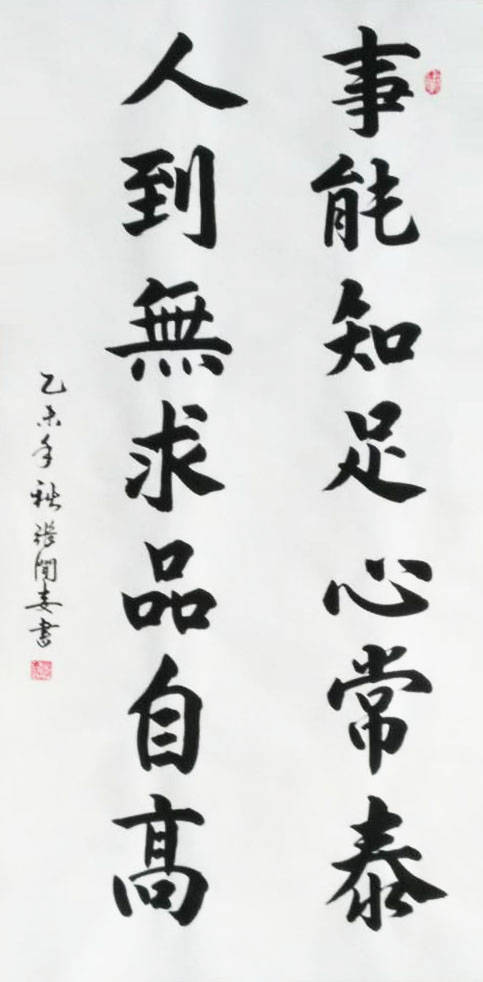 事能知足心常泰
人到無求品自高
乙未年秋張聞書